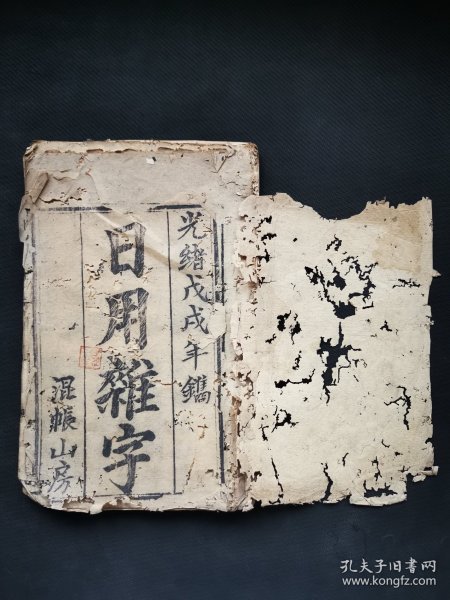 光緒戊戌年鐫
日用雜字
混賬山房
孔夫子旧书网
www.kongfz.com